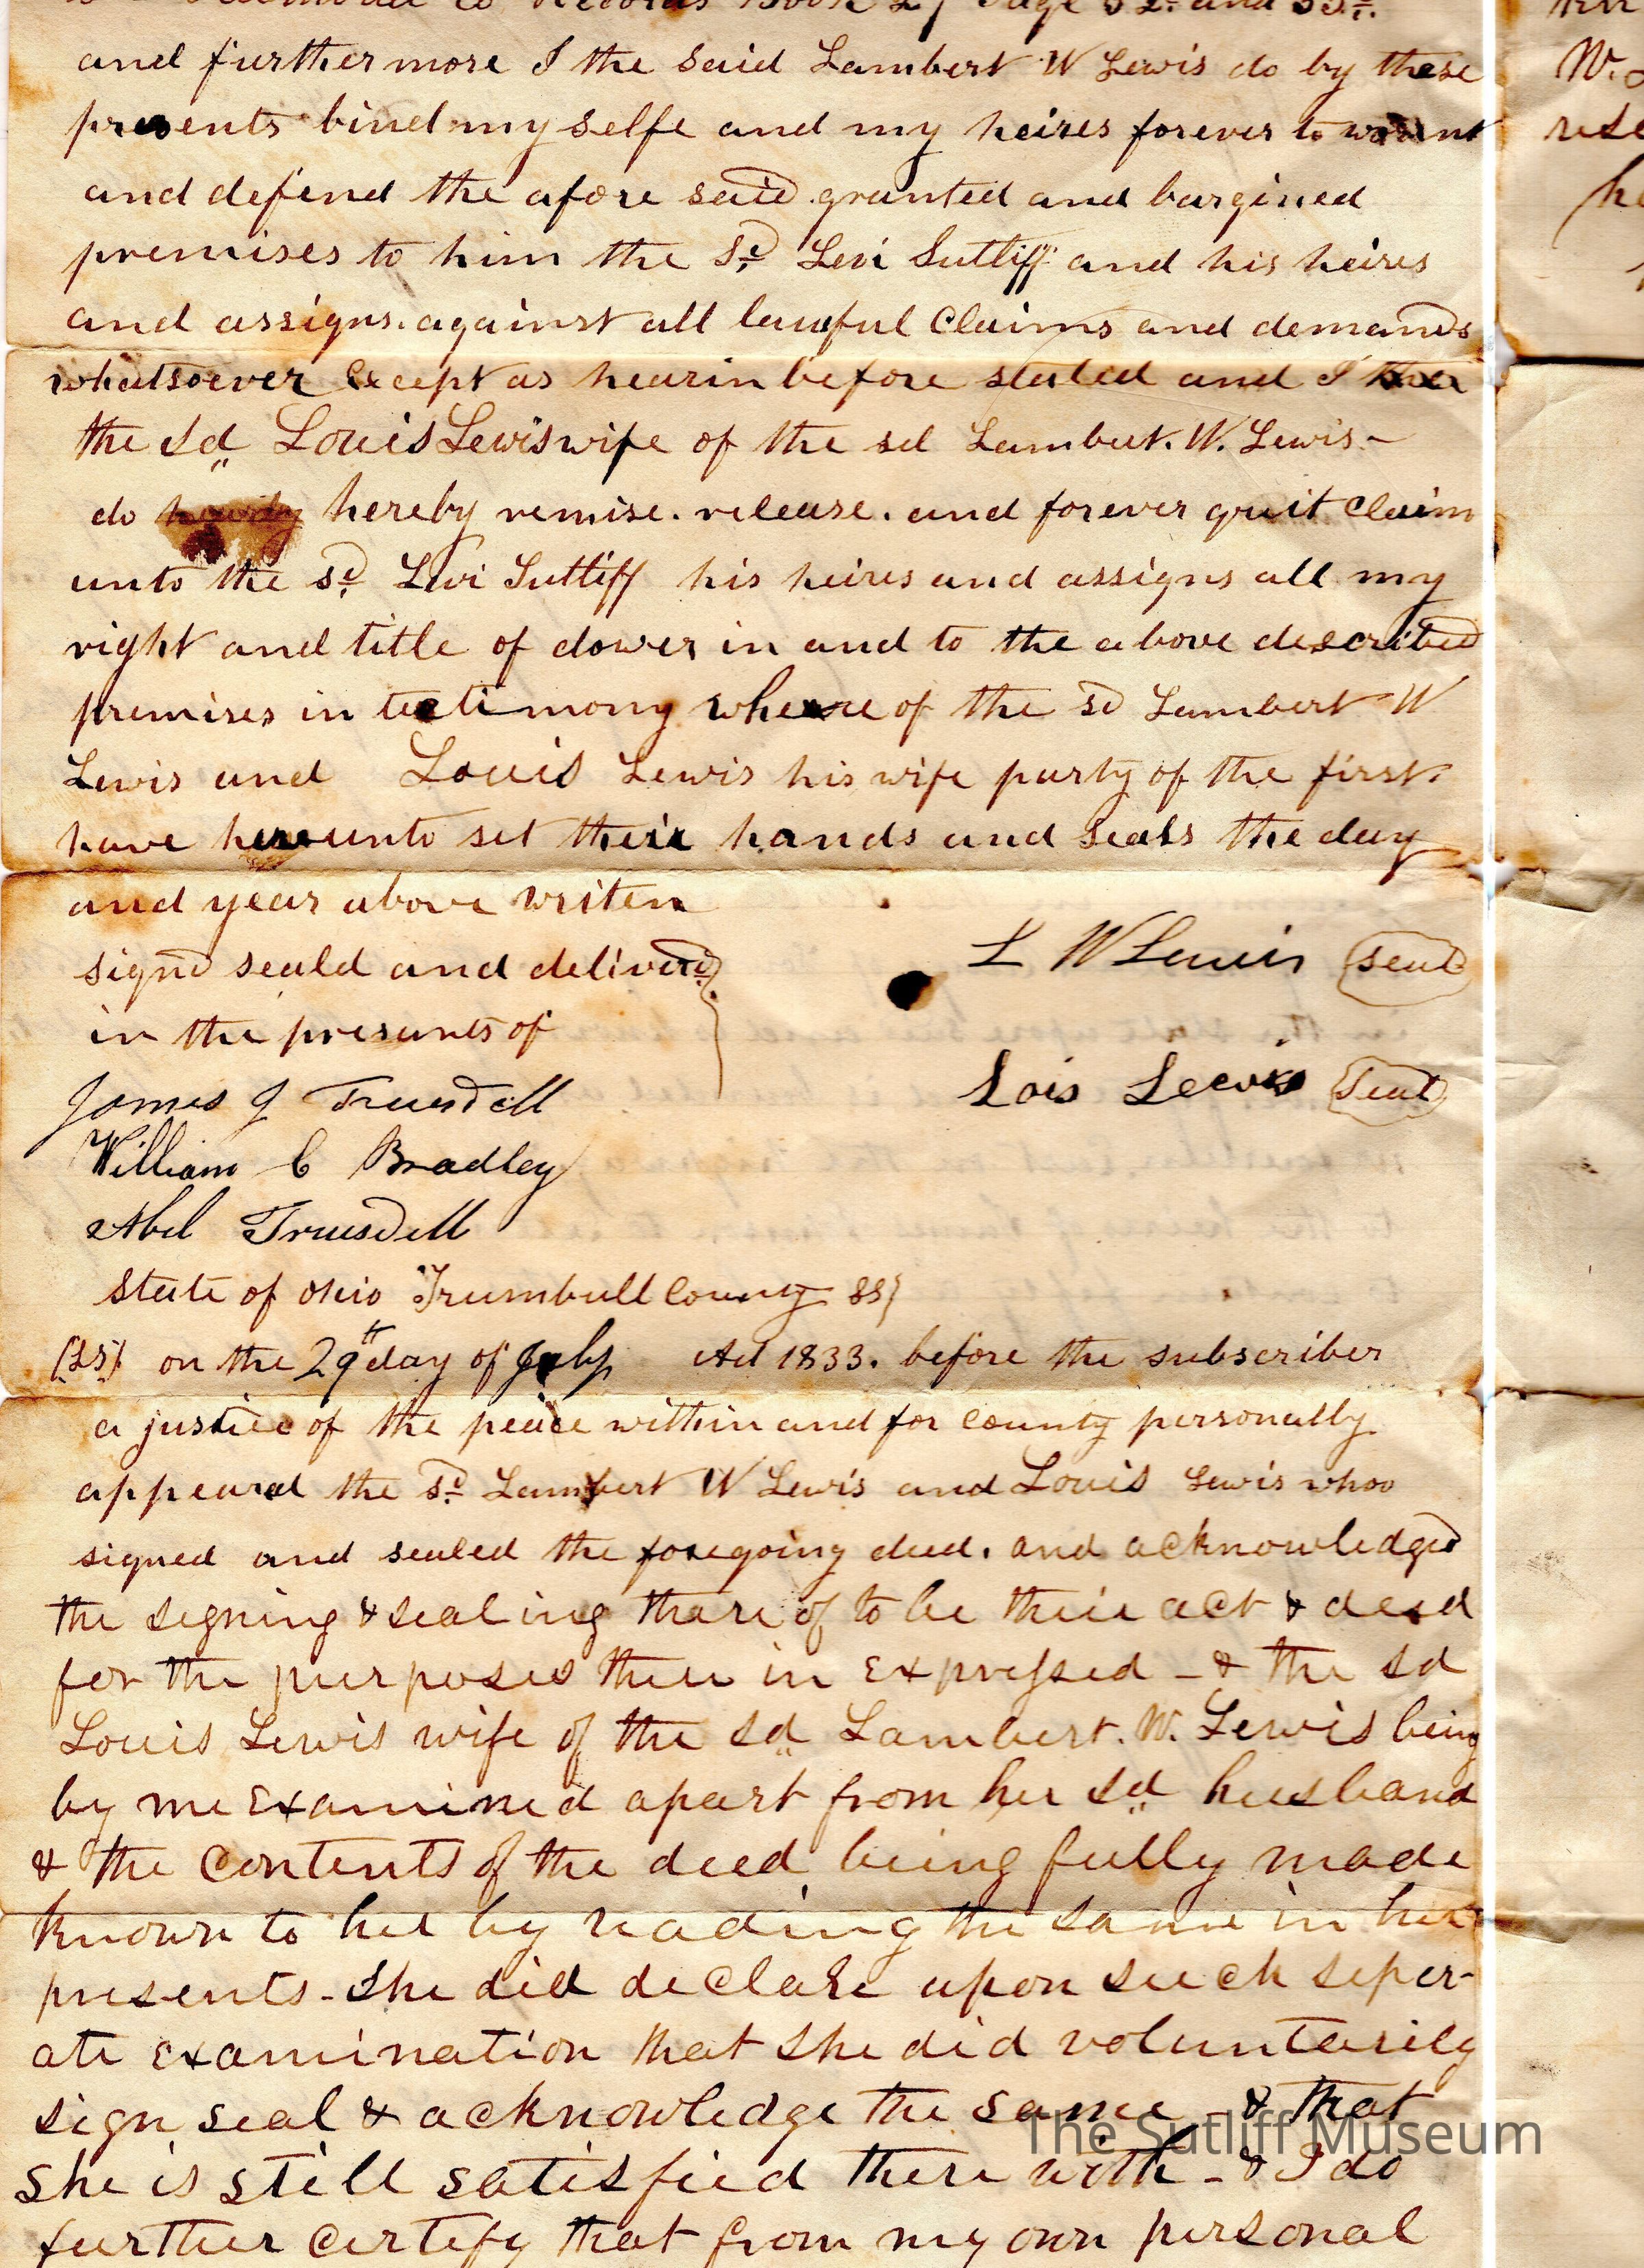 Co Records Book 27 Page 52 and 53
and furthermore I the said Lambert W Lewis do by these
presents bind my selfe and my heires forever to warent
and defend the afore said granted and bargined
premises to him the sd Levi Sutliff and his heires
and assigns. against all lawful Claims and demands
whatsoever Except as hearin before stated and I
the sd Louis Lewis wife of the sd Lambert. W. Lewis-
do hereby remise. release. and forever quit Claim
unto the sd Levi Sutliff his heires and assigns all my
right and title of dower in and to the above described
premises in testimony whereof the sd Lambert W
Lewis and Louis Lewis his wife party of the first
have hereunto set their hands and seals the day
and year above writen
signd seald and deliverd
in the presents of
L W Lewis seal
Lois Lewis seal
James J Truesdell
William C Bradley
Abel Truesdell
State of Ohio Trumbull County SS
(LS) on the 29th day of July Ad 1833. before the subscriber
a justice of the peace within and for county personally
appeared the sd Lambert W Lewis and Louis Lewis whoo
signed and sealed the foregoing deed. and acknowledged
the signing & sealing thare of to be their act & deed
for the purposes there in Expressed - & the sd
Louis Lewis wife of the sd Lambert. W. Lewis being
by me Examined apart from her sd husband
& the Contents of the deed being fully made
known to her by reading the same in her
presents - She did declare upon such seper-
ate Examination that She did voluntarily
sign seal & acknowledge the same - & that
She is still satisfied there with - & I do
further Certify that from my own personal
W.
The Sutliff Museum